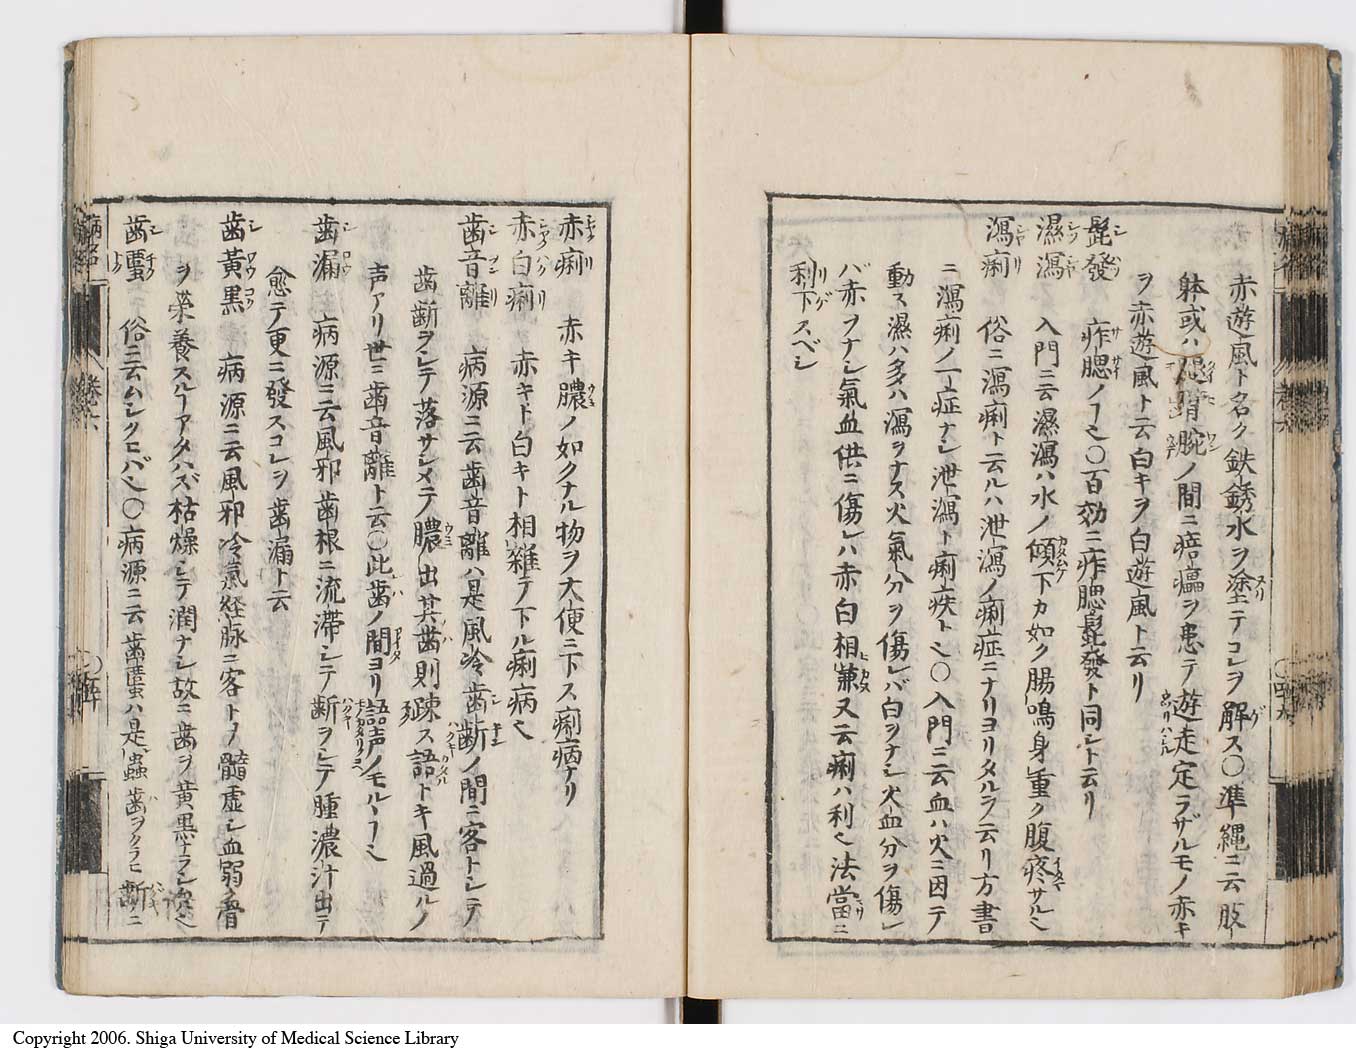 赤遊風ト名ク鉄銹水ヲ塗テコレヲ解ス〇準縄ニ云肢
躰或ハ腿䏶腕ノ間ニ㾦㿔ヲ患テ遊走定ラザルモノ赤キ
ヲ赤遊風ト云白キヲ白遊風ト云リ
髭發 痄腮ノヿ也〇百効ニ痄腮髭發ト同シト云リ
濕瀉 入門ニ云濕瀉ハ水ノ傾下カ如ク腸鳴身重ク腹疼サル也
瀉痢 俗ニ瀉痢ト云ルハ泄瀉ノ痢症ニナリヨリタルヲ云リ方書
ニ瀉痢ノ一症ナシ泄瀉ト痢疾ト也〇入門ニ云血ハ火ニ因テ
動ス濕ハ多クハ瀉ヲナス火氣分ヲ傷レバ白ヲナシ火血分ヲ傷レ
バ赤ヲナシ氣血供ニ傷レハ赤白相兼又云痢ハ利也法當ニ
利下スベシ
赤痢 赤キ膿ノ如クナル物ヲ大便ニ下ス痢病ナリ
赤白痢 赤キト白キト相雜テ下ル痢病也
歯音離 病源ニ云歯音離ハ是風冷歯齗ノ間ニ客トシテ
歯齗ヲシテ落サシメテ膿出其歯則疎ス語トキ風過ルノ
声アリ世ニ歯音離ト云〇此歯ノ間ヨリ語声ノモルヽヿ也
歯漏 病源ニ云風邪歯根ニ流滞シテ齗ヲシテ腫濃汁出テ
愈テ更ニ發スコレヲ歯漏ト云
歯黄黒 病源ニ云風邪冷氣経脉ニ客トメ髓虚シ血弱ク骨
ヲ榮養スルヿアタハズ枯燥シテ潤ナシ故ニ歯ヲ黄黒ナラシム也
歯䘌 俗ニ云ムシクヒバ也〇病源ニ云歯䘌ハ是蟲歯ヲクラヒ齗ニ
病名 巻六
Copyright 2006. Shiga University of Medical Science Library